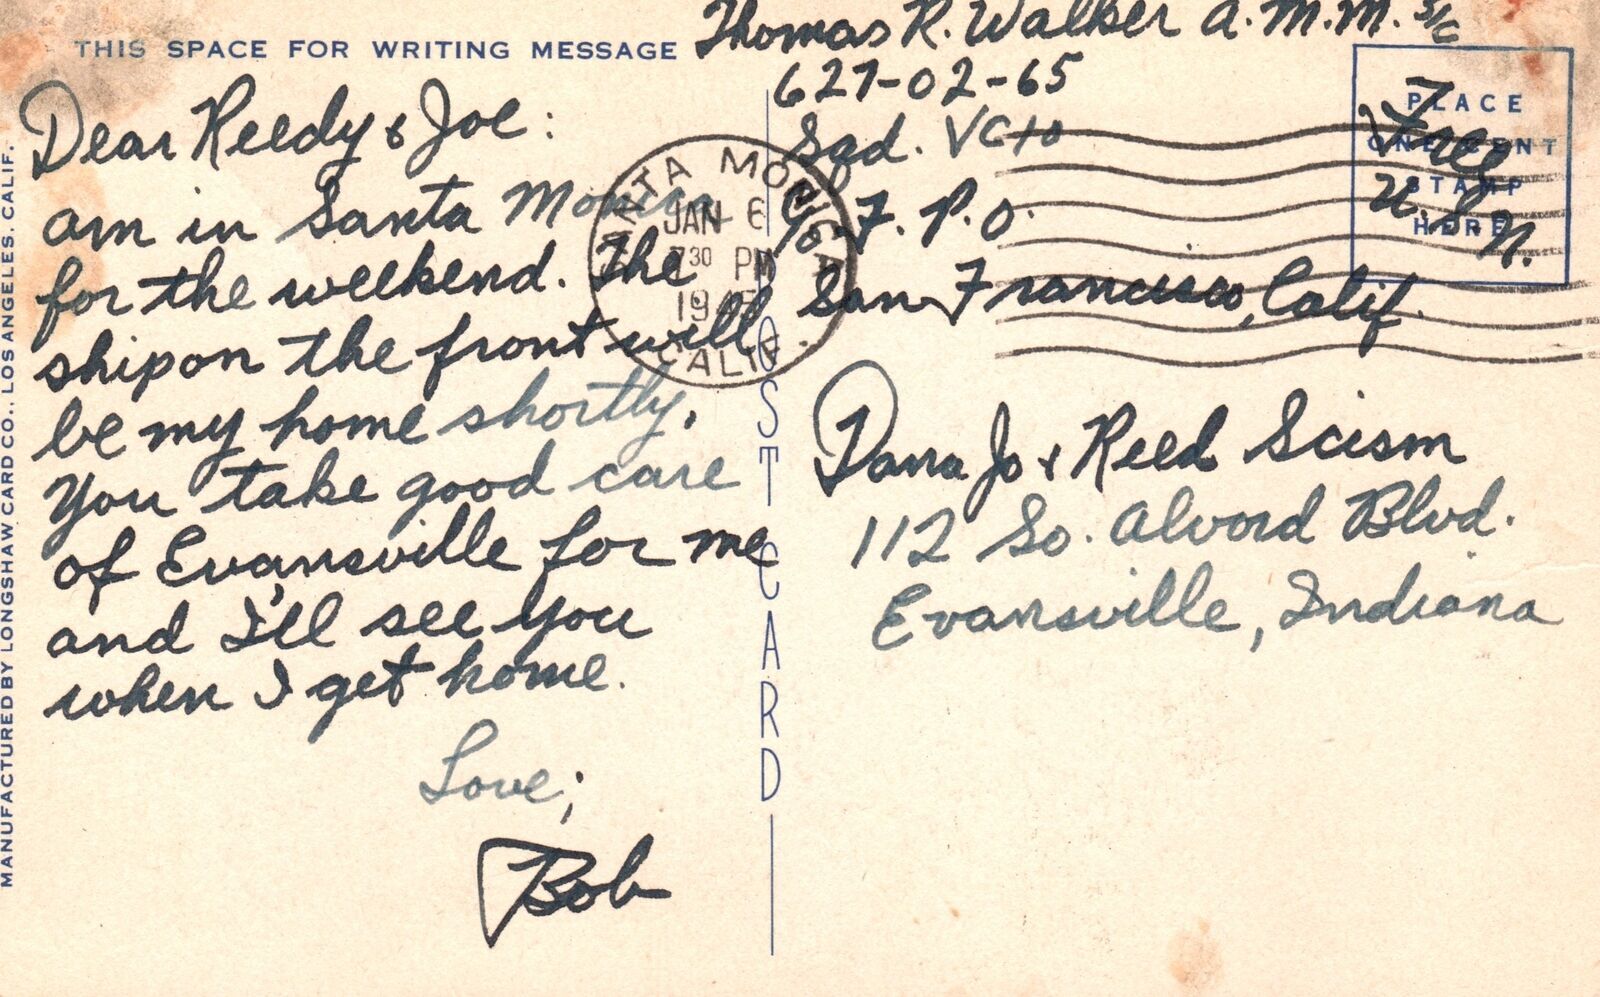 THIS SPACE FOR WRITING MESSAGE
Dear Reedy & Joe:
am in Santa Monica
for the weekend. The
ship on the front will
be my home shortly.
You take good care
of Evansville for me
and I'll see you
when I get home.
Love;
Bob
MANUFACTURED BY LONGSHAW CARD CO., LOS ANGELES, CALIF.
POST CARD
SANTA MONICA
JAN 6
7 30 PM
CALIF.
Thomas R. Walker A.M.M. 3/c
627-02-65
Sqd. VC10
c/o F.P.O.
San Francisco, Calif.
PLACE
ONE CENT
STAMP
HERE
Free
U.S.N.
Dana Jo & Reed Scism
112 So. Alvord Blvd.
Evansville, Indiana